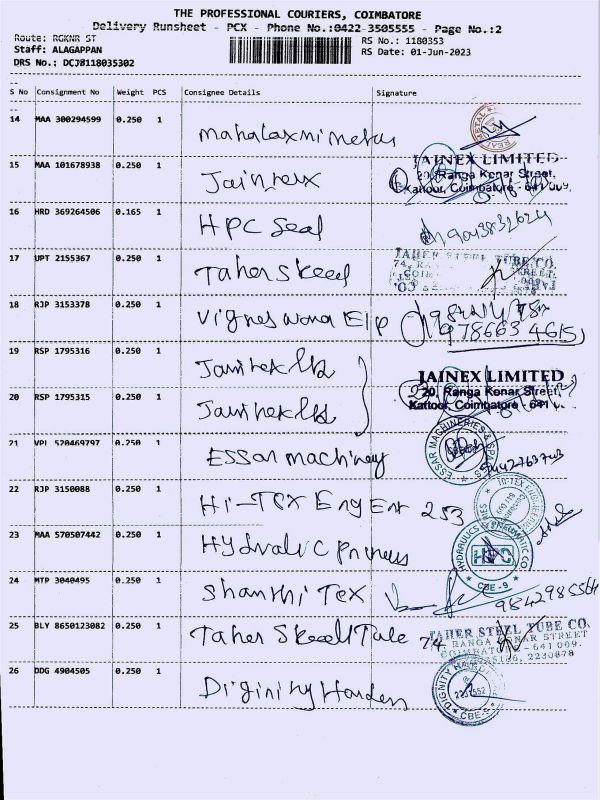 THE PROFESSIONAL COURIERS, COIMBATORE
Delivery Runsheet - PCX - Phone No.:0422-3505555 - Page No.:2
Route: RGKNR ST
RS No.: 1180353
Staff: ALAGAPPAN
RS Date: 01-Jun-2023
DRS No.: DCJB118035302
S No Consignment No Weight PCS Consignee Details Signature
14 MAA 300294599 0.250 1 Mahalaxmi metals
15 MAA 101678938 0.250 1 Jainrex
JAINEX LIMITED
20, Ranga Konar Street,
Kattoor, Coimbatore - 641 009.
16 HRD 369264506 0.165 1 HPC Seal
17 UPT 2155367 0.250 1 Taher Skeel
TAHER STEEL TUBE CO.
18 RJP 3153378 0.250 1
97866 34615
19 RSP 1795316 0.250 1
JAINEX LIMITED
20 RSP 1795315 0.250 1
20, Ranga Konar Street,
Kattoor, Coimbatore - 641
21 VPL 520469797 0.250 1 ESSar machinery
ESSAR MACHINERIES &
22 RJP 3150088 0.250 1 Hi-Tex Eng Ent 253
23 MAA 570507442 0.250 1 Hydralic
HYDRAULICS
PNEUMATIC CO
CBE-9
24 MTP 3040495 0.250 1 Shanthi Tex
9842985564
25 BLY 8650123082 0.250 1 Taher Skeel Tube
TAHER STEEL TUBE CO.
74, RANGA KONAR STREET
COIMBATORE - 641 009.
26 DDG 4904505 0.250 1
DIGNITY
CBE-9